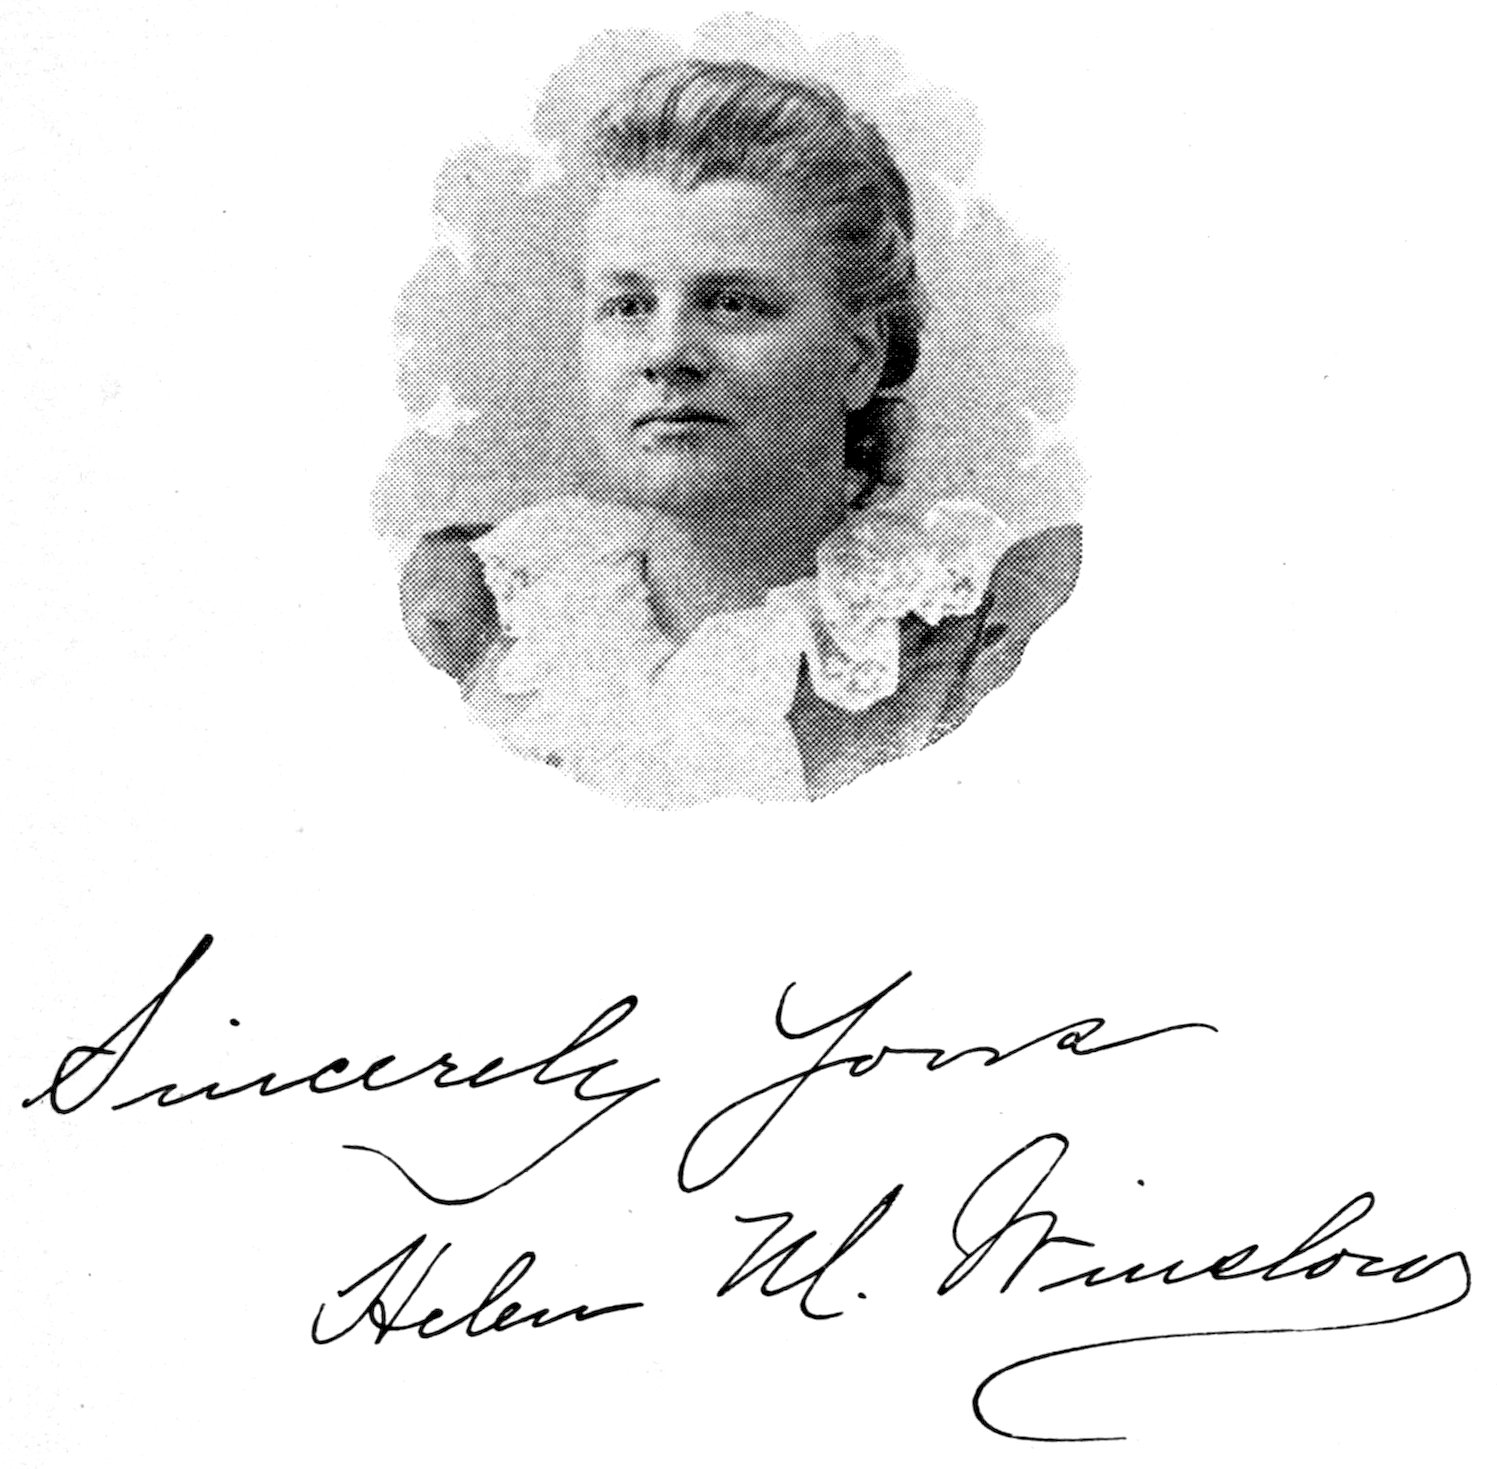 Sincerely Yours
Helen M. Winslow